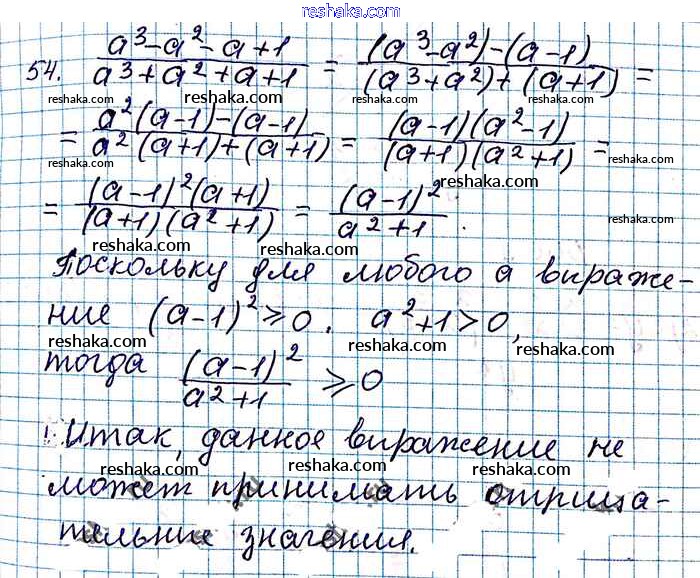 reshaka.ru
54. (a³-a²-a+1)/(a³+a²+a+1) = ((a³-a²)-(a-1))/((a³+a²)+(a+1)) =
reshaka.com reshaka.com reshaka.com reshaka.com
= (a²(a-1)-(a-1))/(a²(a+1)+(a+1)) = ((a-1)(a²-1))/((a+1)(a²+1)) =
reshaka.com reshaka.com reshaka.com reshaka.com
= ((a-1)²(a+1))/((a+1)(a²+1)) = (a-1)²/(a²+1).
reshaka.com reshaka.com reshaka.com
Поскольку для любого a выраже-
ние (a-1)²≥0. a²+1>0,
reshaka.com reshaka.com reshaka.com
тогда (a-1)²/(a²+1) ≥0
Итак, данное выражение не
reshaka.com reshaka.com reshaka.com
может принимать отрица-
тельные значения.
reshaka.com reshaka.com reshaka.com